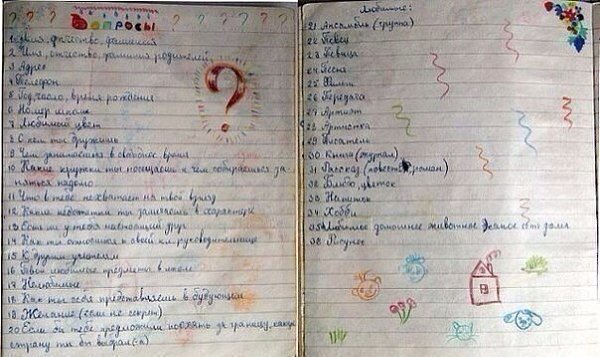 ? ? ? Вопросы ? ? ? ?
1 Имя, отчество, фамилия
2 Имя, отчество, фамилия родителей
3 Адрес
4 Телефон
5 Год, число, время рождения
6 Номер школы
7 Любимый цвет
8 С кем ты дружишь
9 Чем занимаешься в свободное время
10 Какие кружки ты посещаеш и чем собираешься за-
няться надолго
11 Что в тебе не хватает на твой взгляд
12 Какие недостатки ты замечаешь в характере
13 Есть ли у тебя настоящий друг
14 Как ты относишся к своей кл. руководительнице
15 К другим учителям
16 Твои любимые предметы в школе
17 Нелюбимые
18 Как ты себя представляешь в будующем
19 Желание (если не секрет)
20 Если бы тебе предложили поехать за границу, какую
страну ты бы выбрал(-а)
Любимые:
21 Ансамбль (группа)
22 Певец
23 Певица
24 Песня
25 Фильм
26 Передача
27 Артист
28 Артистка
29 Писатель
30 Книга (журнал)
31 Рассказ (повесть, роман)
32 Блюдо, цветок
33 Напиток
34 Хобби
35 Любимое домашнее животное
36 Рисунок